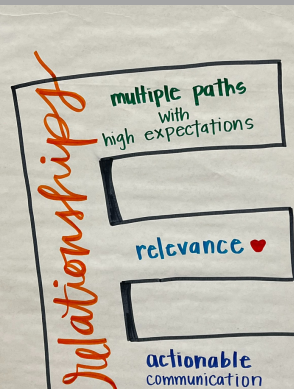 relationships
multiple paths
with
high expectations
relevance
actionable
communication